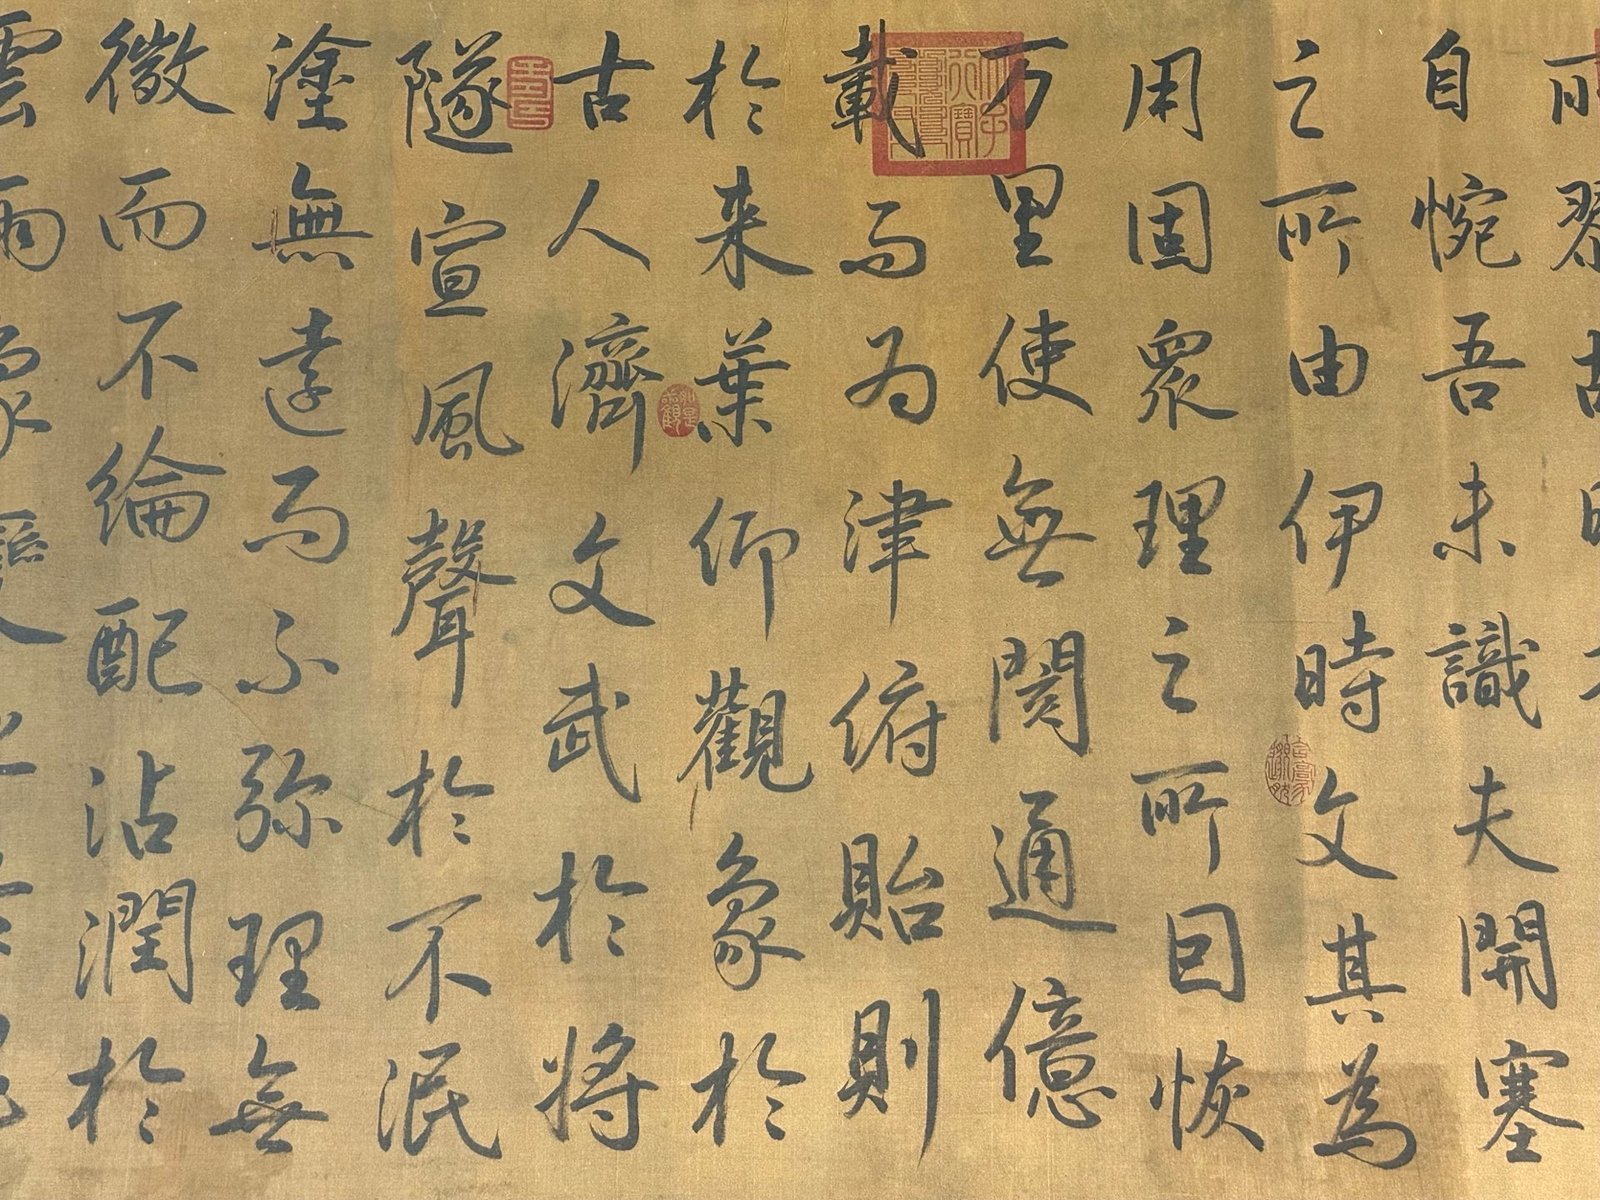 自惋吾未識夫開塞
之所由伊時文其為
用固眾理之所因恢
万里使無閡通億
載而為津俯貽則
於来葉仰觀象於
古人濟文武於將
隧宣風聲於不泯
塗無遠而不弥理無
微而不綸配沾潤於
雲雨象變